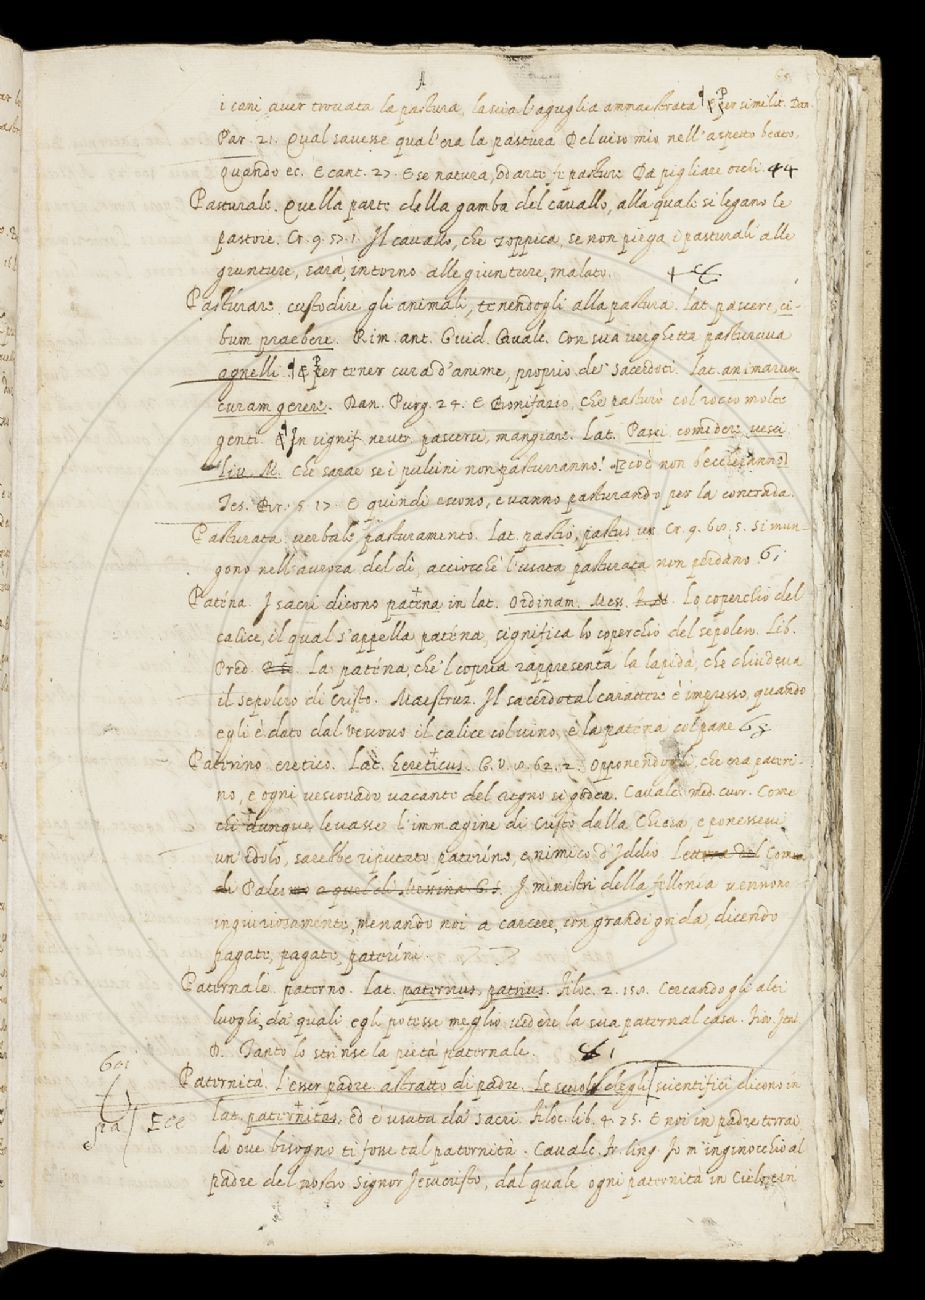 i cani aver trovata la pastura, lascia l'aguglia ammaestrata ¶ Per similit. Dan.
Par. 21. Qual savesse qual'era la pastura Del viso mio nell'aspetto beato,
Quando ec. E cant. 27. E se natura, od arte fe pasture Da pigliare occhi. 44
Pasturale. Quella parte della gamba del cavallo, alla quale si legano le
pastoie. Cr. 9. 57. 1. Il cavallo, che zoppica, se non piega i pasturali alle
giunture, sarà, intorno alle giunture, malato.
Pasturare custodire gli animali, tenendogli alla pastura. lat. pascere, ci-
bum praebere. Rim. ant. Guid. Cavalc. Con sua verghetta pasturava
agnelli. ¶ Per tener cura d'anime, proprio de' sacerdoti. Lat. animarum
curam gerere. Dan. Purg. 24. E Bonifazio, che pasturò col rocco molte
genti. ¶ In signif. neutr. pascersi, mangiare. Lat. Pasci comedere vesci
Liv. M. Che sarae se i pulcini non pasturranno? [cioè non beccheranno]
Tes. Br. 5. 17. E quindi escono, e vanno pasturando per la contrada.
Pasturata verbale pasturamento. Lat. pastio, pastus us Cr. 9. 60. 5. Si mun-
gono nell'aurora del dì, acciocchè l'usata pasturata non perdano. 6;
Paténa. I sacri dicono patena in lat. Ordinam. Mess. Lo coperchio del
calice, il qual s'appella paténa, significa lo coperchio del sepolcro. Lib.
Pred. La paténa, che 'l copria rappresenta la lapida, che chiudeva
il sepolcro di Cristo. Maestruz. Il sacerdotal carattere è impresso, quando
egli è dato dal vescovo il calice col vino, e la paténa col pane
Paterino eretico. Lat. Ereticus. G. V. 62. 2. Opponendogli, che era pateri-
no, e ogni vescovado vacante del regno si godea. Cavalc. med. cuor. Come
chi dunque levasse l'immagine di Cristo dalla Chiesa e ponessevi
un'idolo, sarebbe riputato pateríno, e nimico d'Iddio Lettera del Comu
di Palermo a quel di Messina G. S. I ministri della fellonía vennono
ingiuriosamente, menando noi a carcere, con grandi grida, dicendo
pagate, pagate, pateríni
Paternale. paterno. Lat. paternus, patrius. Filoc. 2. 150. Cercando gli alti
luoghi, da' quali egli potesse meglio vedere la sua paternal casa. Fior. Ital.
D. Tanto lo strinse la pietà paternale.
Paternità. l'esser padre. astratto di padre. Le scuole degli scientifici dicono in
lat. paternitas, ed è usata da' sacri. Filoc. lib. 4. 25. E noi in padre terrai
là ove bisogno ti fosse tal paternità. Cavalc. Fr. ling. Io m'inginocchio al
padre del nostro Signor Jesucristo, dal quale ogni paternità in Cielo, e in